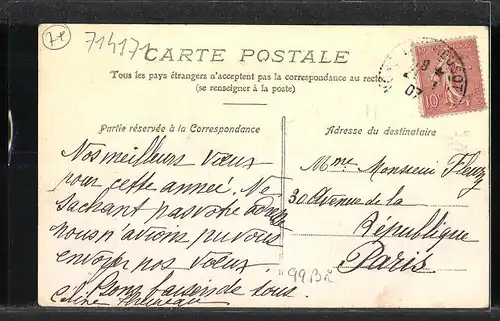 78
714171
CARTE POSTALE
Tous les pays étrangers n'acceptent pas la correspondance au recto
(se renseigner à la poste)
Partie réservée à la Correspondance
Adresse du destinataire
10
07
Nos meilleurs vœux
pour cette année. Ne
sachant pas votre adresse
nous n'avions pu vous
envoyer nos vœux.
Bons baisers de tous.
Mme Monsieur Fleury
30 Avenue de la
République
Paris
99B2